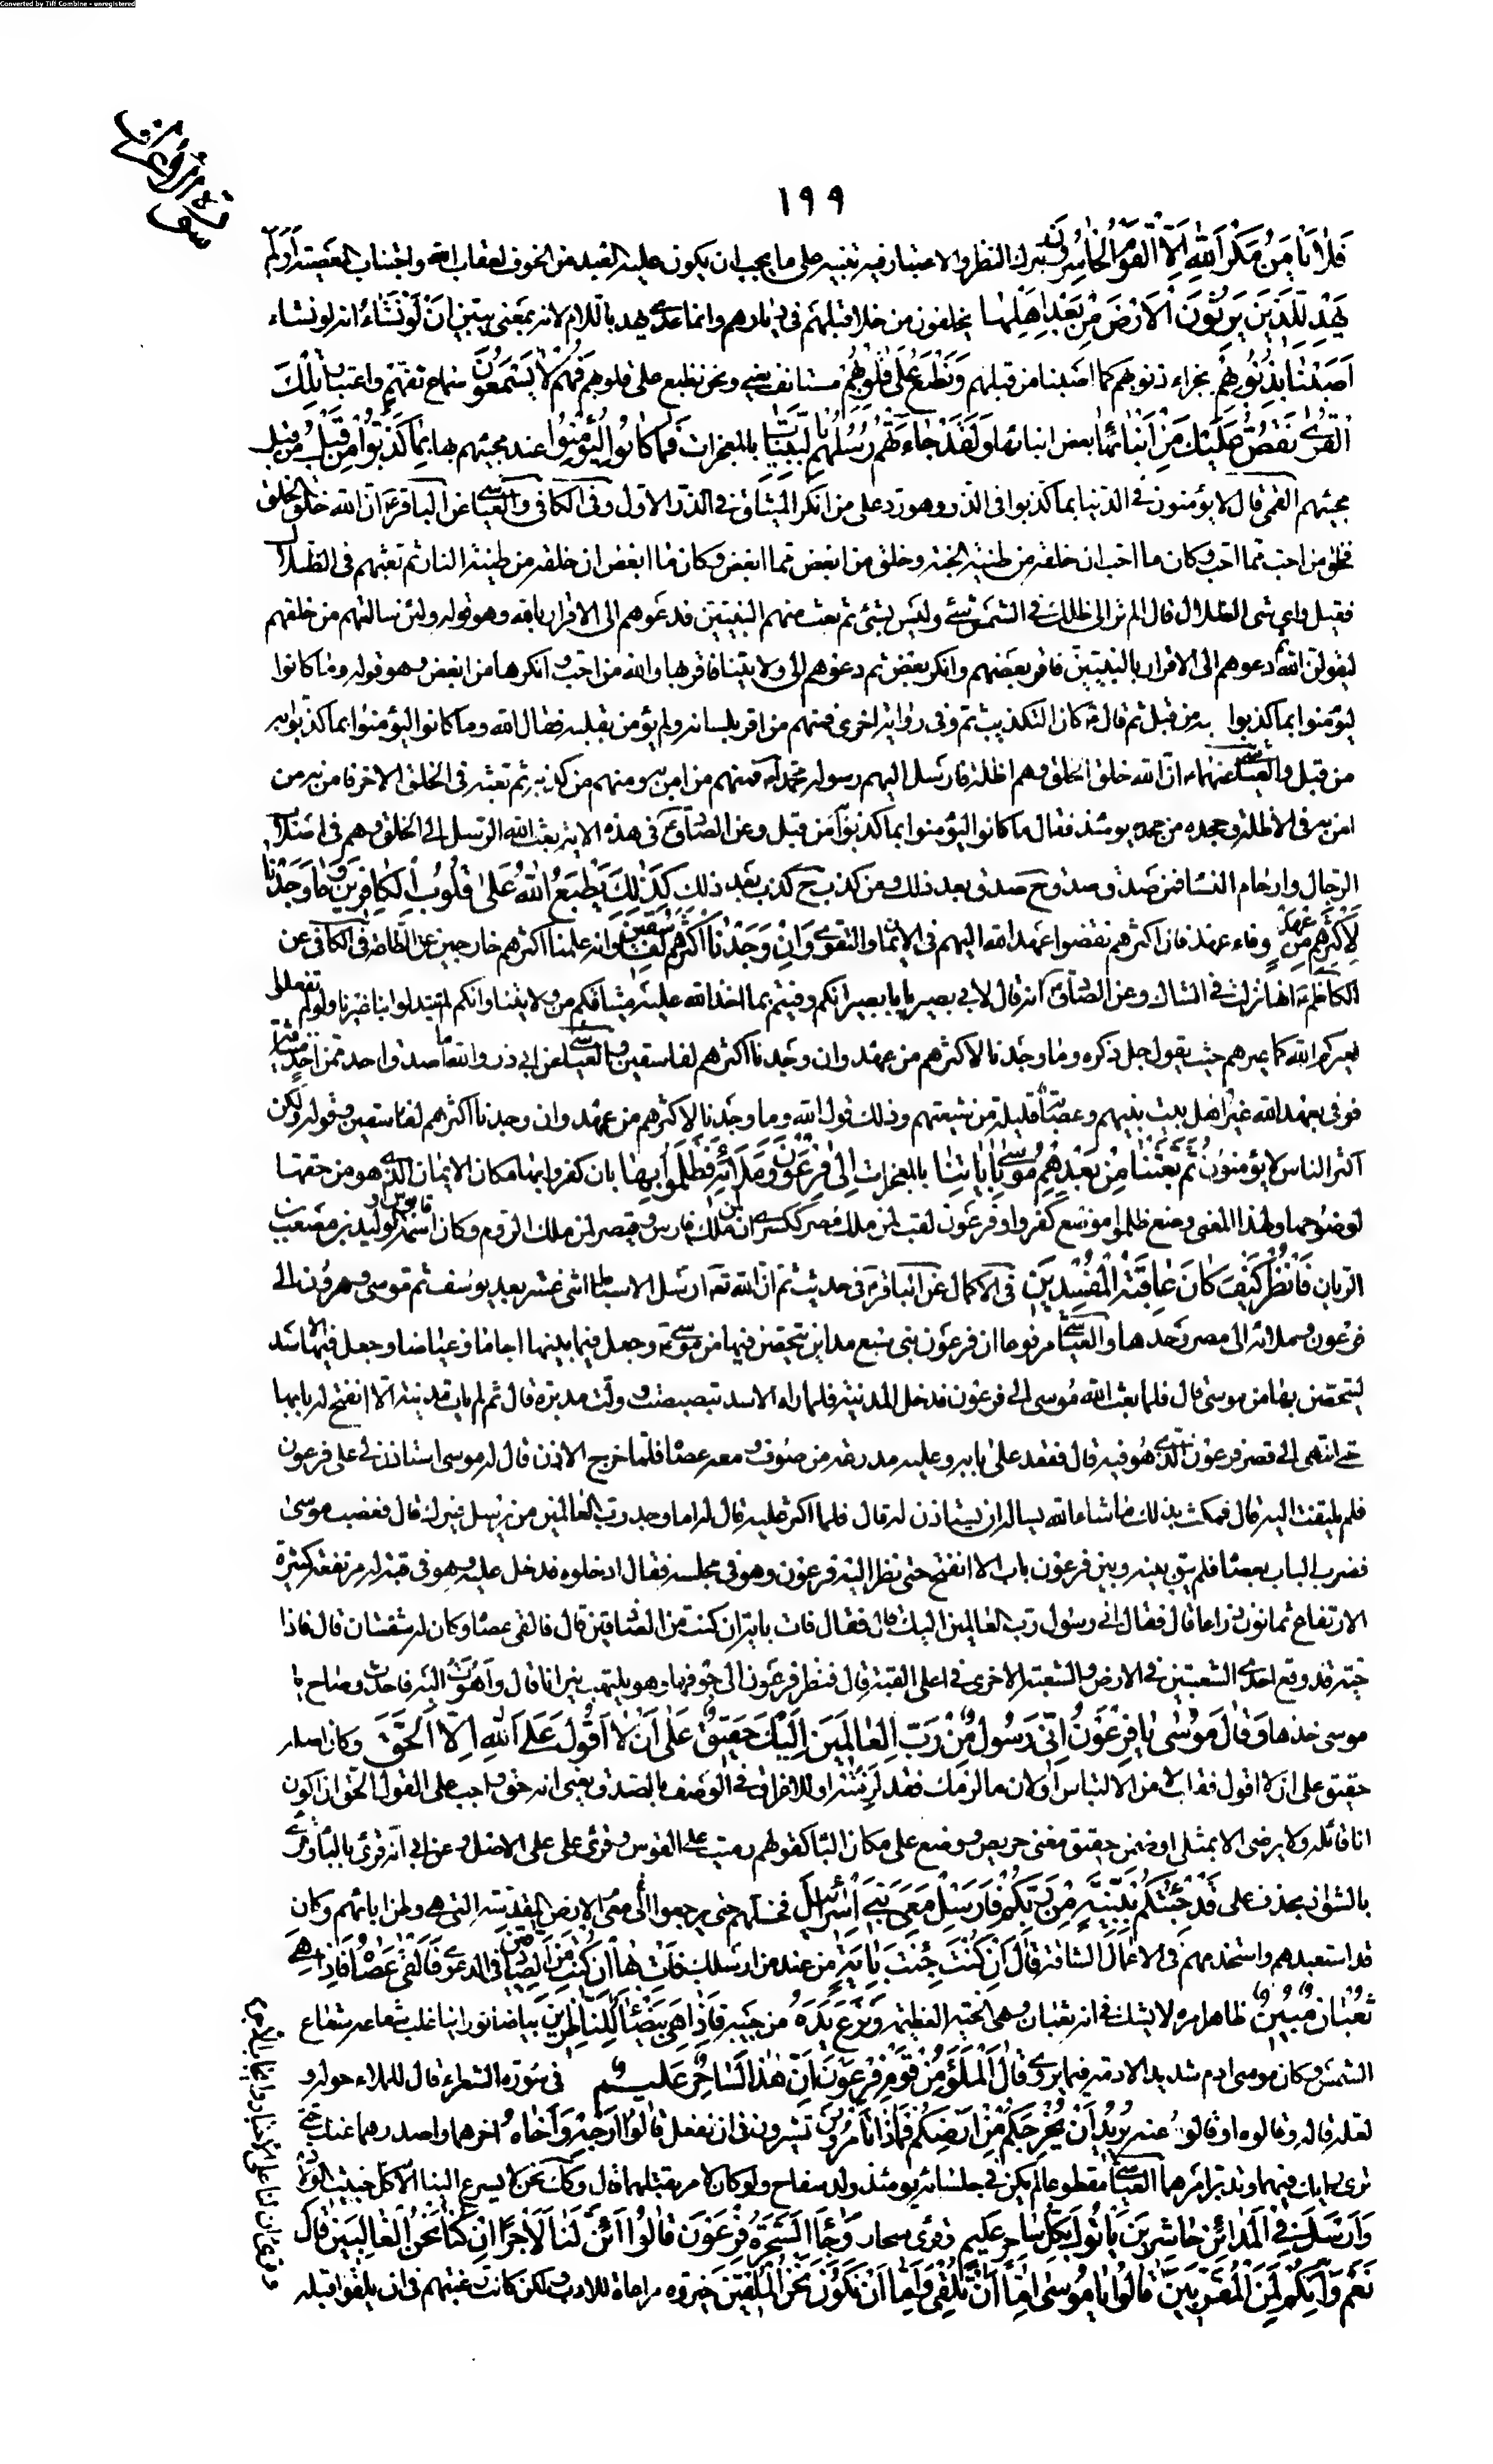 Converted by Tiff Combine - unregistered
سورة الأعراف
١٩٩
فَلا يَأْمَنُ مَكْرَ اللهِ إِلَّا الْقَوْمُ الْخاسِرُونَ بترك النظر والاعتبار فيه تنبيه على ما يجب ان يكون عليه العبد من الخوف لعقاب الله واجتناب المعصية أَوَلَمْ
يَهْدِ لِلَّذِينَ يَرِثُونَ الْأَرْضَ مِنْ بَعْدِ أَهْلِها يخلفون من خلا قبلهم في ديارهم وانما عدى يهد باللام لانه بمعنى يبين أَنْ لَوْ نَشاءُ انه لو نشاء
أَصَبْناهُمْ بِذُنُوبِهِمْ بجزاء ذنوبهم كما اصبنا من قبلهم وَنَطْبَعُ عَلى قُلُوبِهِمْ مستانف يعني ونحن نطبع على قلوبهم فَهُمْ لا يَسْمَعُونَ سماع تفهم واعتبار تِلْكَ
الْقُرى نَقُصُّ عَلَيْكَ مِنْ أَنْبائِها بعض انبائها وَلَقَدْ جاءَتْهُمْ رُسُلُهُمْ بِالْبَيِّناتِ بالمعجزات فَما كانُوا لِيُؤْمِنُوا عند مجيئهم بها بِما كَذَّبُوا مِنْ قَبْلُ من قبل
مجيئهم القمي قال لا يؤمنون في الدنيا بما كذبوا في الذر وهو رد على من انكر الميثاق في الذر الاول وفي الكافي والعياشي عن الباقر ع ان الله خلق الخلق
فخلق من احب مما احب وكان ما احب ان خلقه من طينة الجنة وخلق من ابغض مما ابغض وكان ما ابغض ان خلقه من طينة النار ثم بعثهم في الظلال
فقيل واي شئ الظلال قال الم تر الى ظلك في الشمس شئ وليس بشئ ثم بعث منهم النبيين فدعوهم الى الاقرار بالله وهو قوله ولئن سالتهم من خلقهم
ليقولن الله ثم دعوهم الى الاقرار بالنبيين فاقر بعضهم وانكر بعض ثم دعوهم الى ولايتنا فاقر بها والله من احب وانكرها من ابغض وهو قوله وما كانوا
ليؤمنوا بما كذبوا به من قبل ثم قال ع كان التكذيب ثم وفي رواية اخرى فمنهم من اقر بلسانه ولم يؤمن بقلبه فقال الله وما كانوا ليؤمنوا بما كذبوا به
من قبل والعياشي عنهما ع ان الله خلق الخلق وهم اظلة فارسل اليهم رسوله محمدا ص فمنهم من امن به ومنهم من كذبه ثم بعثه في الخلق الاخر فامن به من
امن به في الاظلة وجحده من جحد يومئذ فقال ما كانوا ليؤمنوا بما كذبوا من قبل وعن الصادق ع في هذه الاية بعث الله الرسل الى الخلق وهم في اصلاب
الرجال وارحام النساء فمن صدق ح صدق بعد ذلك ومن كذب ح كذب بعد ذلك كَذلِكَ يَطْبَعُ اللهُ عَلى قُلُوبِ الْكافِرِينَ وَما وَجَدْنا
لِأَكْثَرِهِمْ مِنْ عَهْدٍ وفاء عهد فان اكثرهم نقضوا عهد الله اليهم في الايمان والتقوى وَإِنْ وَجَدْنا أَكْثَرَهُمْ لَفاسِقِينَ وانه علمنا اكثرهم خارجين عن الطاعة في الكافي عن
الكاظم ع انها نزلت في الشاك وعن الصادق ع انه قال لابي بصير يا با بصير انكم وفيتم بما اخذ الله عليه ميثاقكم من ولايتنا وانكم لم تبدلوا بنا غيرنا ولو لم تفعلوا
لعيركم الله كما عيرهم حيث يقول جل ذكره وما وجدنا لاكثرهم من عهد وان وجدنا اكثرهم لفاسقين والعياشي عن ابي ذر والله ما صدق احد ممن اخذ ميثاقه
فوفى بعهد الله غير اهل بيت نبيهم وعصابة قليلة من شيعتهم وذلك قول الله وما وجدنا لاكثرهم من عهد وان وجدنا اكثرهم لفاسقين وقوله ولكن
اكثر الناس لا يؤمنون ثُمَّ بَعَثْنا مِنْ بَعْدِهِمْ مُوسى بِآياتِنا بالمعجزات إِلى فِرْعَوْنَ وَمَلَائِهِ فَظَلَمُوا بِها بان كفروا بها مكان الايمان الذي هو من حقها
لوضوحها ولهذا المعنى وضع ظلموا موضع كفروا وفرعون لقب لمن ملك مصر ككسرى لمن ملك فارس وقيصر لمن ملك الروم وكان اسمه قابوس او الوليد بن مصعب بن
الريان فَانْظُرْ كَيْفَ كانَ عاقِبَةُ الْمُفْسِدِينَ في الاكمال عن الباقر ع في حديث ثم ان الله تعه ارسل الاسباط اثني عشر بعد يوسف ثم موسى وهرون الى
فرعون وملائه الى مصر وحدها والعياشي مرفوعا ان فرعون بنى سبع مداين يتحصن فيها من موسى ع وجعل فيما بينها اجاما وغياضا وجعل فيها الاسد
ليتحصن بها من موسى قال فلما بعث الله موسى الى فرعون فدخل المدينة فلما راه الاسد تبصبصت وولت مدبرة قال ثم لم يات مدينة الا انفتح له بابها
حتى انتهى الى قصر فرعون الذي هو فيه قال فقعد على بابه وعليه مدرعة من صوف ومعه عصا فلما خرج الاذن قال له موسى استاذن لي على فرعون
فلم يلتفت اليه قال فمكث بذلك ما شاء الله يساله ان يستاذن له قال فلما اكثر عليه قال له اما وجد رب العالمين من يرسل غيرك قال فغضب موسى
فضرب الباب بعصاه فلم يبق بينه وبين فرعون باب الا انفتح حتى نظر اليه فرعون وهو في مجلسه فقال ادخلوه فدخل عليه وهو في قبة له مرتفعة كثيرة
الارتفاع ثمانون ذراعا قال فقال اني رسول رب العالمين اليك قال فقال فات باية ان كنت من الصادقين قال فالقى عصاه وكان له شعبتان قال فاذا
حية قد وقع احدى الشعبتين في الارض والشعبة الاخرى في اعلى القبة قال فنظر فرعون الى جوفها وهو يلتهب نيرانا قال واهوت اليه فاحدث وصاح يا
موسى خذها وَقالَ مُوسى يا فِرْعَوْنُ إِنِّي رَسُولٌ مِنْ رَبِّ الْعالَمِينَ اليك حَقِيقٌ عَلى أَنْ لا أَقُولَ عَلَى اللهِ إِلَّا الْحَقَّ وكان اصله
حقيق علي ان لا اقول فقلب لامن الالتباس او لان ما لزمك فقد لزمته او للاغراق في الوصف بالصدق يعني انه حق واجب على القول الحق ان اكون
انا قائله ولا يرضى الا بمثلي او ضمن حقيق معنى حريص او وضع على مكان الباء كقولهم رميت على القوس وقرئ علي على الاصل وعن ابي انه قرئ بالباء وقرئ
بالشواذ بحذف على قَدْ جِئْتُكُمْ بِبَيِّنَةٍ مِنْ رَبِّكُمْ فَأَرْسِلْ مَعِيَ بَنِي إِسْرائِيلَ فخلهم حتى يرجعوا معي الى الارض المقدسة التي هي وطن ابائهم وكان
قد استعبدهم واستخدمهم في الاعمال الشاقة قالَ إِنْ كُنْتَ جِئْتَ بِآيَةٍ من عند من ارسلك فَأْتِ بِها إِنْ كُنْتَ مِنَ الصَّادِقِينَ في الدعوى فَأَلْقى عَصاهُ فَإِذا هِيَ
ثُعْبانٌ مُبِينٌ ظاهر امره لا يشك في انه ثعبان وهي الحية العظيمة وَنَزَعَ يَدَهُ من جيبه فَإِذا هِيَ بَيْضاءُ لِلنَّاظِرِينَ بياضا نورانيا غلب شعاعه شعاع
الشمس وكان موسى ادم شديد الادمة فيما يروى قالَ الْمَلَأُ مِنْ قَوْمِ فِرْعَوْنَ إِنَّ هذا لَساحِرٌ عَلِيمٌ في سورة الشعراء قال للملاء حوله و
لعله قاله وقالوه او قالوه عنه يُرِيدُ أَنْ يُخْرِجَكُمْ مِنْ أَرْضِكُمْ فَما ذا تَأْمُرُونَ تشيرون في ان نفعل قالُوا أَرْجِهْ وَأَخاهُ اخرهما واصدرهما عنك حتى
ترى رايك فيهما وتدبر امرهما العياشي مقطوعا لم يكن في جلسائه يومئذ ولد سفاح ولو كان لامر بقتلهما قال وكذلك نحن لا يسرع الينا الا كل خبيث الولادة
وَأَرْسِلْ فِي الْمَدائِنِ حاشِرِينَ يَأْتُوكَ بِكُلِّ ساحِرٍ عَلِيمٍ وقرئ سحار وَجاءَ السَّحَرَةُ فِرْعَوْنَ قالُوا أَئِنَّ لَنا لَأَجْراً إِنْ كُنَّا نَحْنُ الْغالِبِينَ قالَ
نَعَمْ وَإِنَّكُمْ لَمِنَ الْمُقَرَّبِينَ قالُوا يا مُوسى إِمَّا أَنْ تُلْقِيَ وَإِمَّا أَنْ نَكُونَ نَحْنُ الْمُلْقِينَ خيروه مراعاة للادب ولكن كانت رغبتهم في ان يلقوا قبله
وقرئ ان لنا على الاخبار وايجاب الاجر